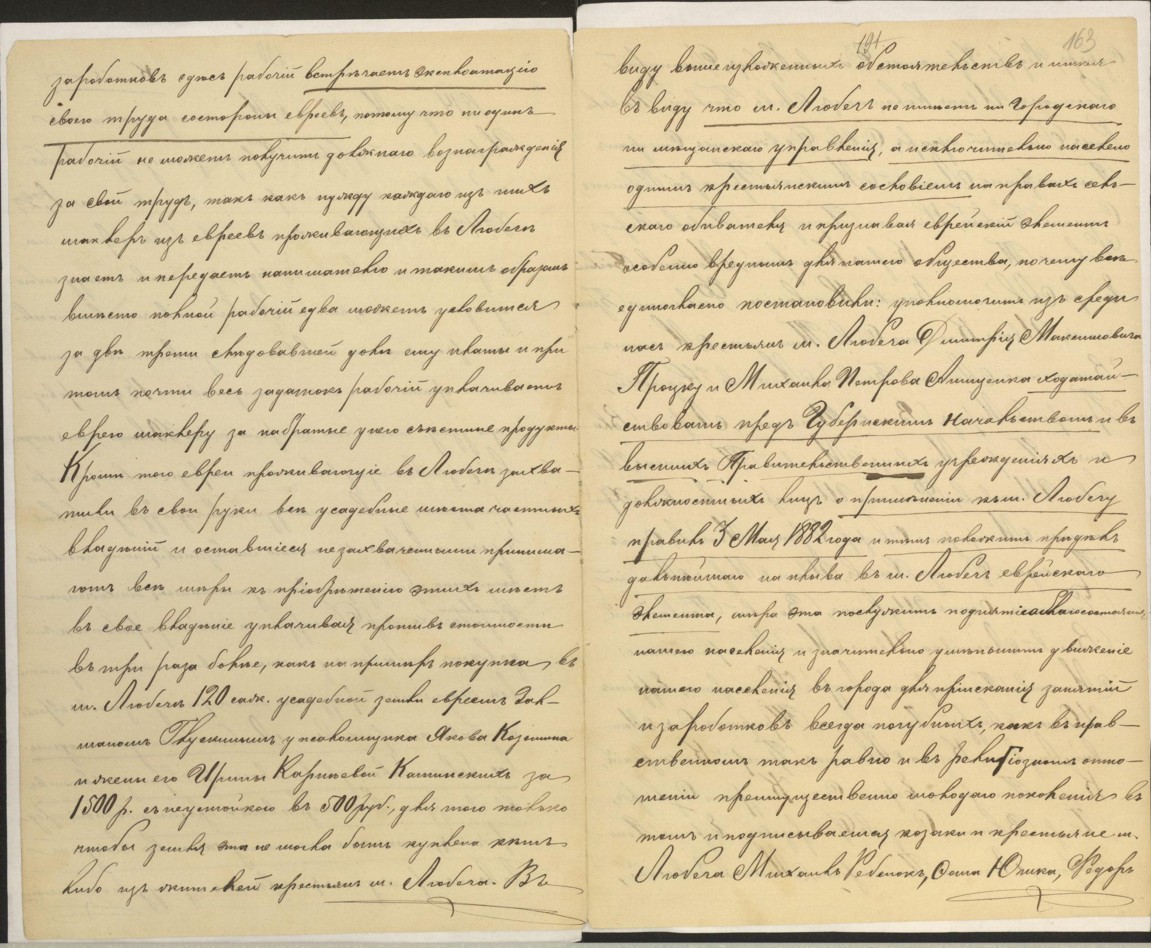 заработковъ здѣсь рабочій встрѣчаетъ эксплоатацію
своего труда состороны евреевъ, потому что ни одинъ
рабочій не можетъ получить должнаго вознагражденія
за свой трудъ, такъ какъ нужду каждаго изъ нихъ
маклеръ изъ евреевъ проживающихъ въ Любечѣ
знаетъ и передаетъ нанимателю и такимъ образомъ
вмѣсто полной рабочій едва можетъ условится
за двѣ трети слѣдовавшей довѣ ему платы и при
томъ почти весь задатокъ рабочій уплачиваетъ
еврею маклеру за набратые у него съѣстные продукты
Кромѣ того евреи проживающіе въ Любечѣ захва-
тили въ свои руки всѣ усадебные мѣста частныхъ
владѣній и оставшіеся незахваченными принима-
ютъ всѣ мѣры къ пріобрѣтенію этихъ мѣстъ
въ свое владѣніе уплачивая противъ стоимости
въ три раза болѣе, какъ на примѣръ покупка въ
м. Любечѣ 120 саж. усадебной земли евреемъ Зал-
маномъ Глускинымъ у псаломщика Якова Козьмина
и жены его Ирины Карповой Каминскихъ за
1500 р. съ неустойкою въ 500 руб., для того только
чтобы земля эта не могла быть куплена кѣмъ
либо изъ жителей крестьянъ м. Любеча. Въ
191 163
виду вышеизложенныхъ обстоятельствъ и имѣя
въ виду что м. Любечъ не имѣетъ ни Городскаго
ни мѣщанскаго управленія, а исключительно населено
однимъ крестьянскимъ сословіемъ на правахъ сель-
скаго обывателя и признавая еврейскій элементъ
особенно вреднымъ для нашего общества, почему всѣ
единогласно постановили: уполномочить изъ среди
насъ крестьянъ м. Любеча Димитрія Максимовича
Процку и Михаила Петрова Анищенка ходатай-
ствовать предъ Губернскимъ Начальствомъ и въ
высшихъ Правительственныхъ учрежденіяхъ и
должностныхъ лицъ о примѣненіи къ м. Любечу
правилъ 3 Мая 1882 года и тѣмъ положить предѣлъ
дальнѣйшаго наплыва въ м. Любечъ еврейскаго
элемента, мѣра эта послужитъ поднятію благосостоянія
нашего населенія и значительно уменьшитъ движеніе
нашего населенія въ города для пріисканія занятій
и заработковъ всегда пагубныхъ, какъ въ нрав-
ственномъ такъ равно и въ религіозномъ отно-
шеніи преимущественно молодаго поколенія въ
томъ и подписываемся козаки и крестьяне м.
Любеча Михаилъ Ребенокъ, Сома Юшка, Федоръ